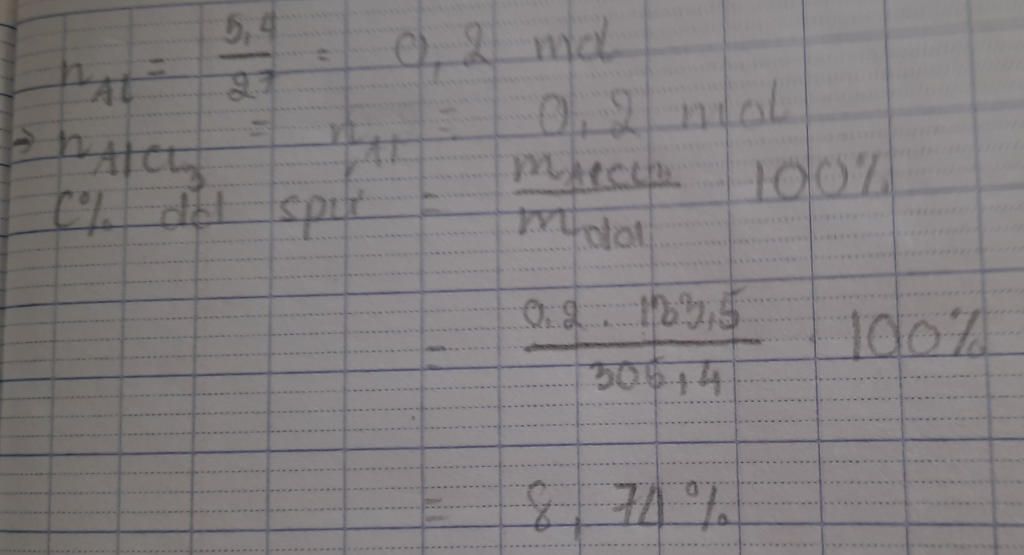 n_Al = 5,4/27 = 0,2 mol
→ n_AlCl₃ = n_Al = 0,2 mol
C% dd spư = m_AlCl₃/m_dd 100%
= 0,2 . 133,5/305,4 . 100%
= 8,74%